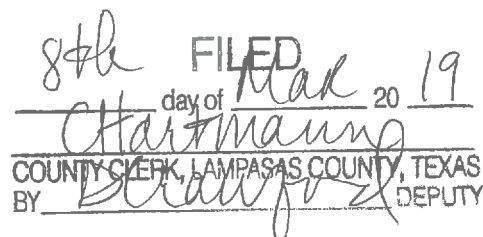 FILED
8th day of Mar 20 19
CHartmann
COUNTY CLERK, LAMPASAS COUNTY, TEXAS
BY DCrawford DEPUTY